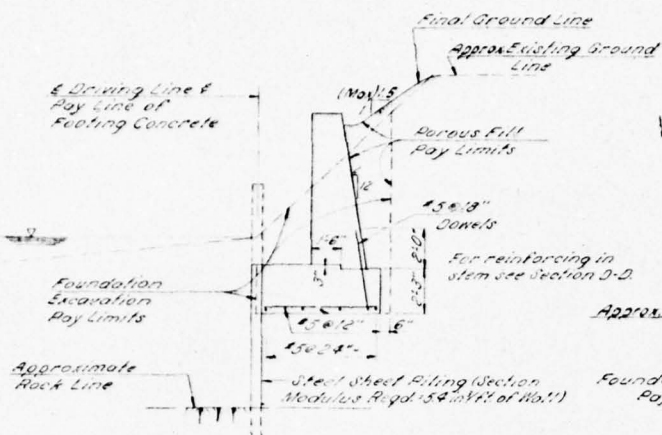 Final Ground Line
Approx Existing Ground
Line
℄ Driving Line &
Pay Line of
Footing Concrete
(Max) 1.5
1
Porous Fill
Pay Limits
12
#5@18"
Dowels
1'-6"
2'-0"
For reinforcing in
stem see Section D-D.
3"
2'-3"
Foundation
Excavation
Pay Limits
#5@12"
6"
#5@24"
Approx.
Approximate
Rock Line
Steel Sheet Piling (Section
Modulus Reqd. 5.4 in³/ft. of Wall)
Found
Pay